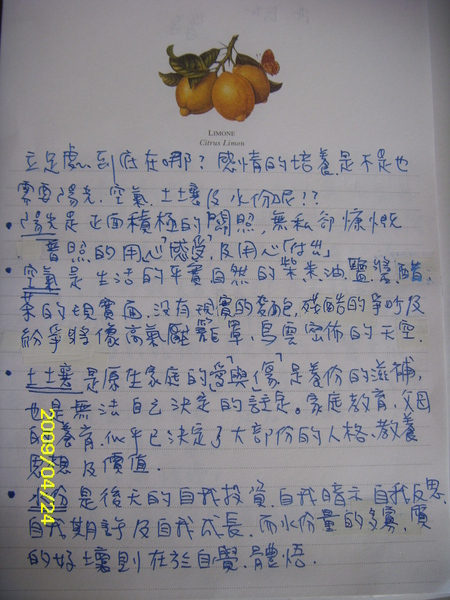 LIMONE
Citrus Limon
立足處到底在哪?感情的培養是不是也
需要陽光.空氣.土壤及水份呢??
陽光是正面積極的關照,無私卻慷慨
普照的用心「感受」及用心「付出」
空氣是生活的平實自然的柴米油鹽醬醋
茶的現實面.沒有現實的麵包,殘酷的爭吵及
紛爭將像高氣壓籠罩.烏雲密佈的天空.
土壤是原生家庭的「愛與傷」是養份的滋補,
也是無法自己決定的註定。家庭教育.父母
的養育.似乎已決定了大部份的人格、教養
思想及價值.
水份是後天的自我投資.自我暗示.自我反思.
自我期許及自我成長.而水份量的多寡.質
的好壞則在於自覺.體悟.
2009/04/24